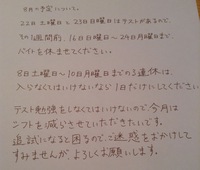 8月の予定について。
22日土曜日と23日日曜日はテストがあるので、
その1週間前、16日日曜日〜24日月曜日まで、
バイトを休ませてください。
8日土曜日〜10日月曜日までの3連休は、
入らなくてはいけないなら1日だけにしてください。
テスト勉強をしなくてはいけないので今月は
シフトを減らさせていただきたいです。
追試になると困るので、ご迷惑をおかけして
すみませんがよろしくお願いします。